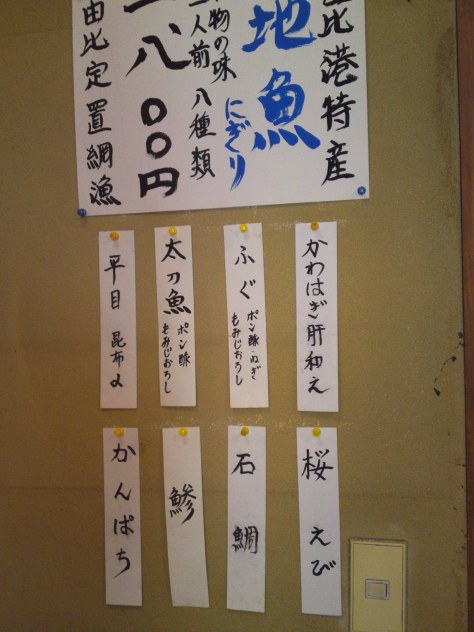 比港特産
地魚
にぎり
物の味
一人前 八種類
一八〇〇円
由比定置網漁
かわはぎ肝和え
ふぐ ポン酢・ねぎ
もみじおろし
太刀魚 ポン酢
もみじおろし
平目 昆布〆
桜えび
石鯛
鯵
かんぱち